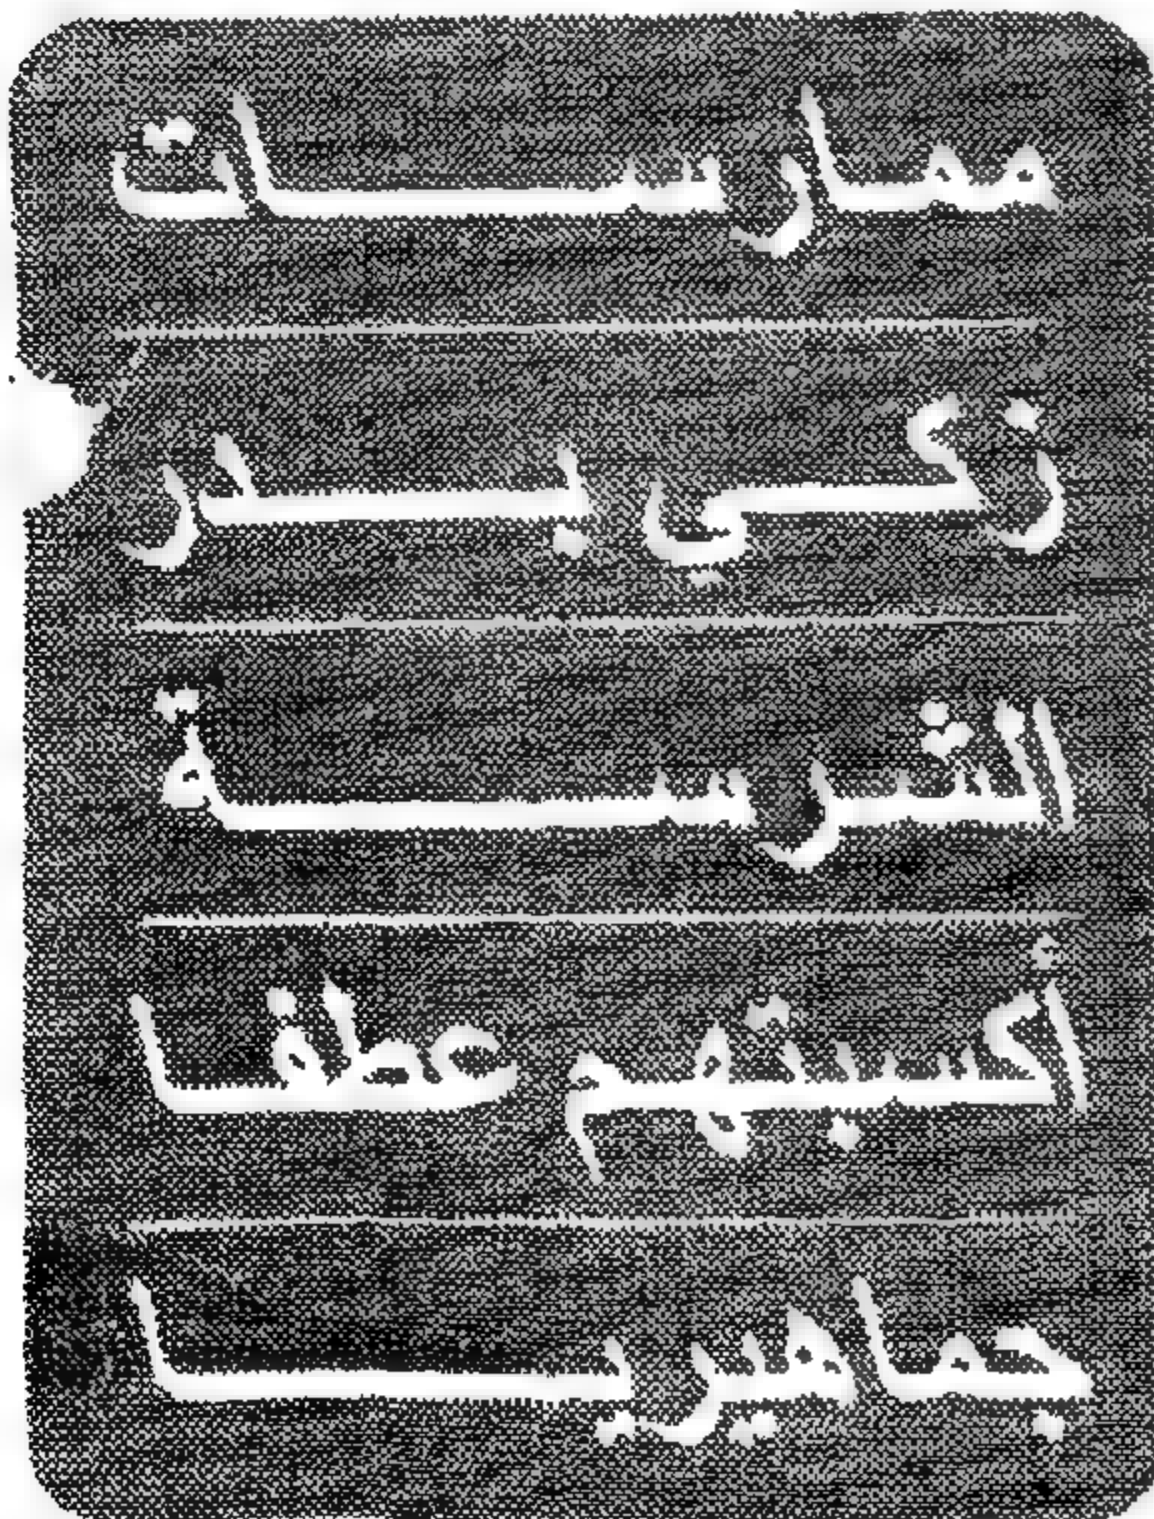 ممارسات
زكي بدر
الشرسة
أكسبتهم عطفا
جماهيريا